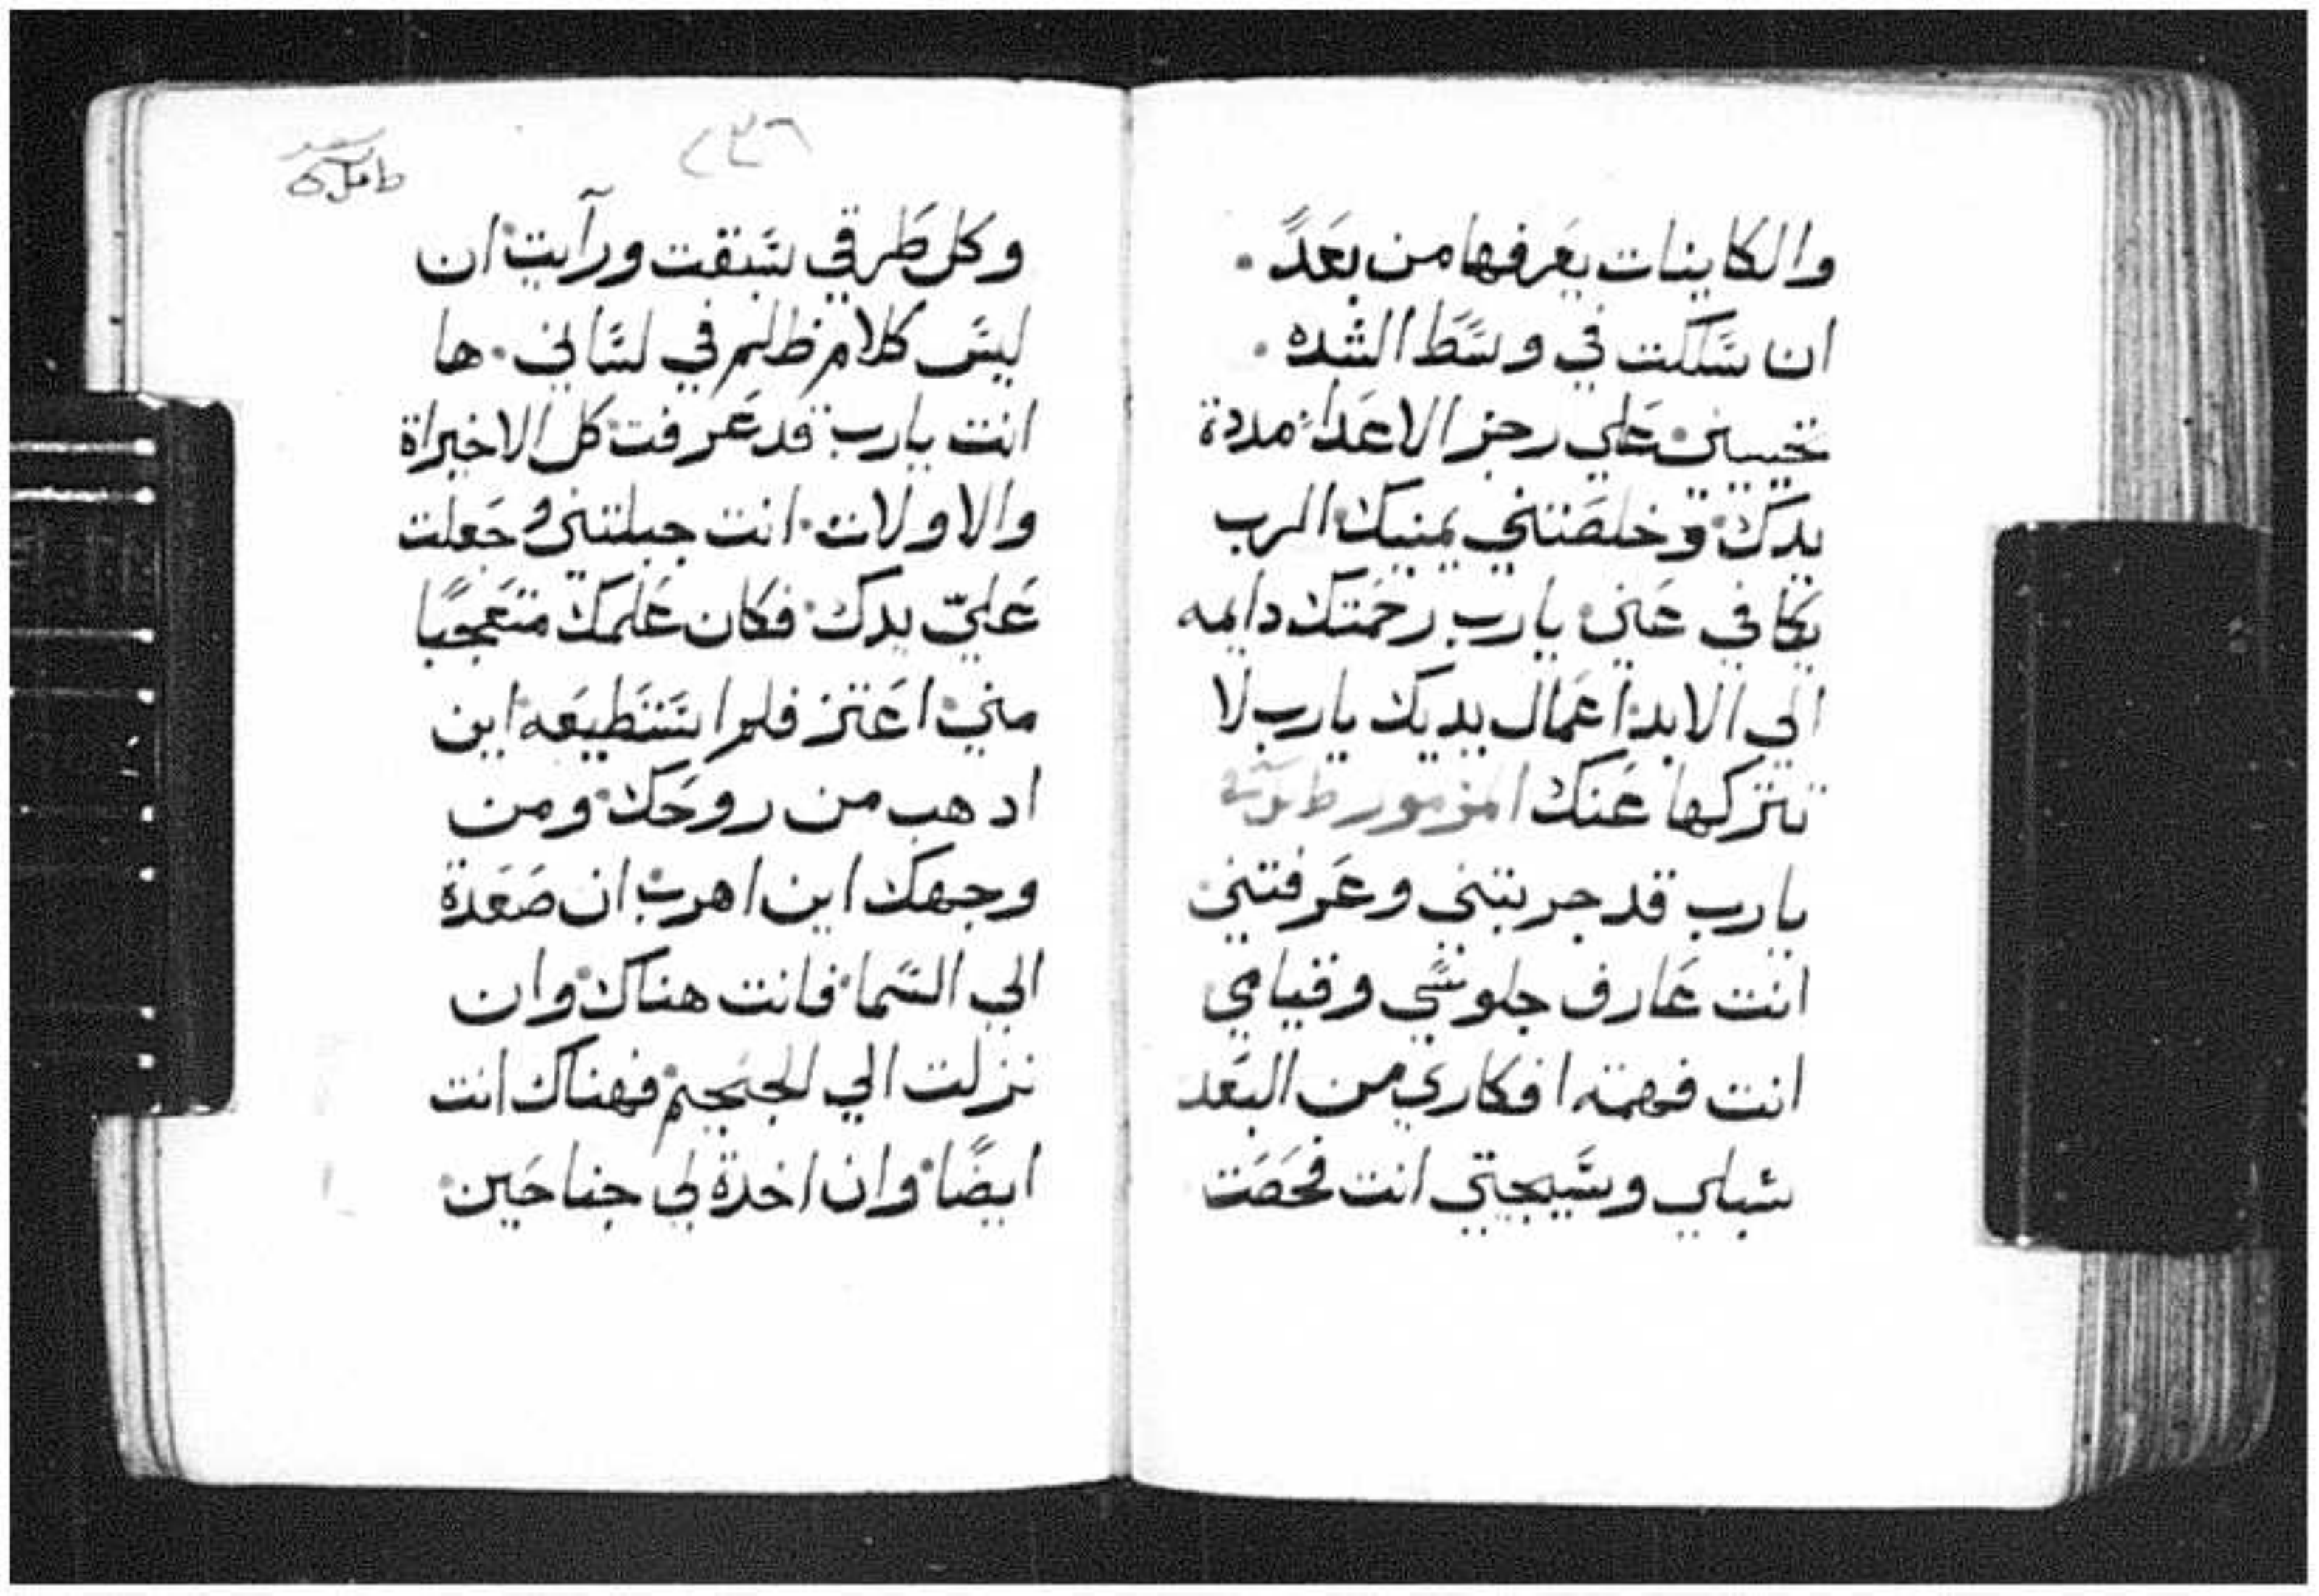 والكاينات يعَرفها من بعَدً .
ان سَلكت في وسَّطَ الشده .
تحييني عَلي رجز الاعَدا مددة
يدك وخلصَتني يمنيك الرب
يكافي عَني يارب رحمَتك دايمه
الي الابد اعَمال يديك يارب لا
تتركها عَنك المزمور
يارب قد جربتني وعَرفتني
انت عَارف جلوسَّي وقيامي
انت فهمته افكاري من البعَد
سُبلي وسَّيجتي انت فحَصَت
٢٣٦
وكل طَرقي سَّبقت ورآيت ان
ليسَّ كلام ظلم في لسَّاني . ها
انت يارب قد عَرفت كل الاخيراة
والاولات انت جبلتني وجَعلت
عَليّ يدك فكان عَلمك متعَجبًا
مني اعَتز فلم استَّتَطيعَه اين
ادهب من روحَك ومن
وجهك اين اهرب ان صَعَدة
الي السَّما فانت هناك وان
نزلت الي الجحَيم فهناك انت
ايضًا وان اخدة لي جناحَين